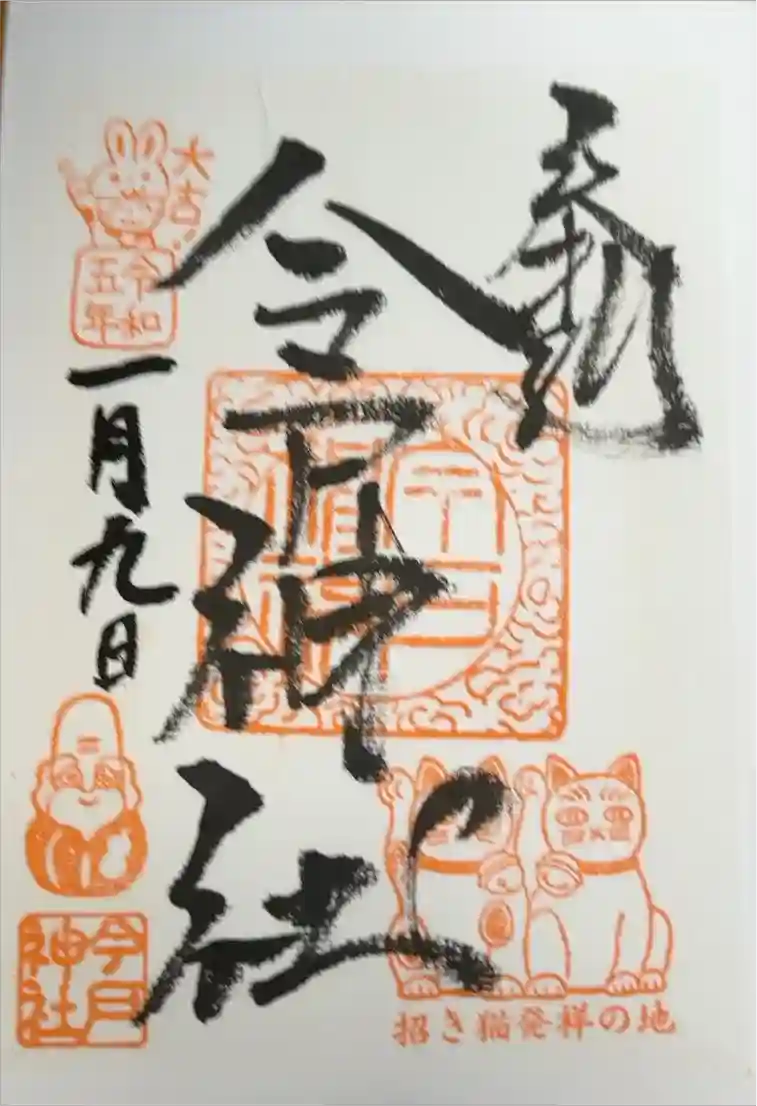 奉拝
今戸神社
大吉!
令和
五年
一月九日
今戸
神社
招き猫発祥の地